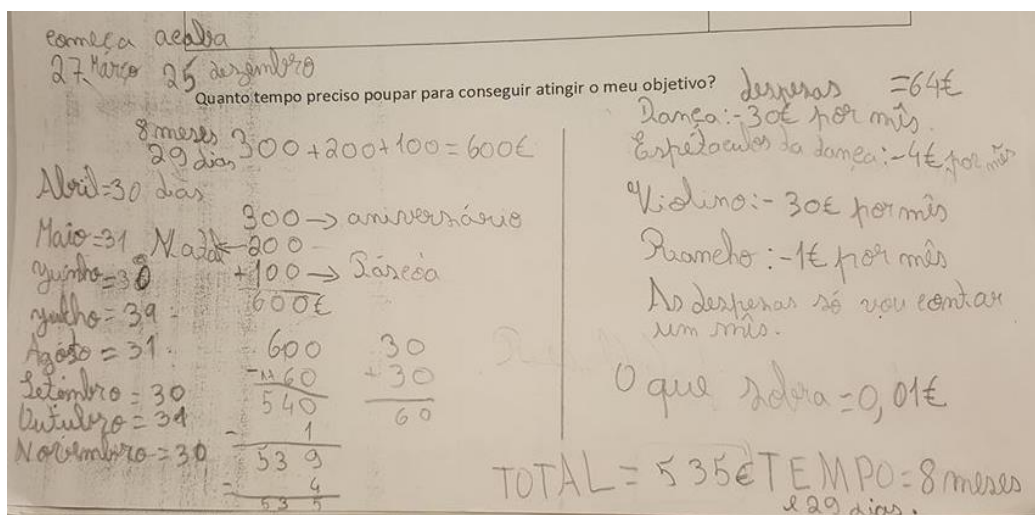 começa acaba
27 Março 25 dezembro
Quanto tempo preciso poupar para conseguir atingir o meu objetivo?
8 meses
29 dias
300+200+100=600€
Abril=30 dias
Maio=31
Junho=30
Julho=31
Agosto=31
Setembro=30
Outubro=31
Novembro=30
300→aniversário
Natal←200
+100→Páscoa
600€
600
-60
540
- 1
539
- 4
535
30
+30
60
despesas =64€
Dança:-30€ por mês
Espétaculos da dança:-4€ por mês
Violino:-30€ por mês
Rancho:-1€ por mês
As despesas só vou contar
um mês.
O que sobra=0,01€
TOTAL=535€ TEMPO=8 meses
e 29 dias.